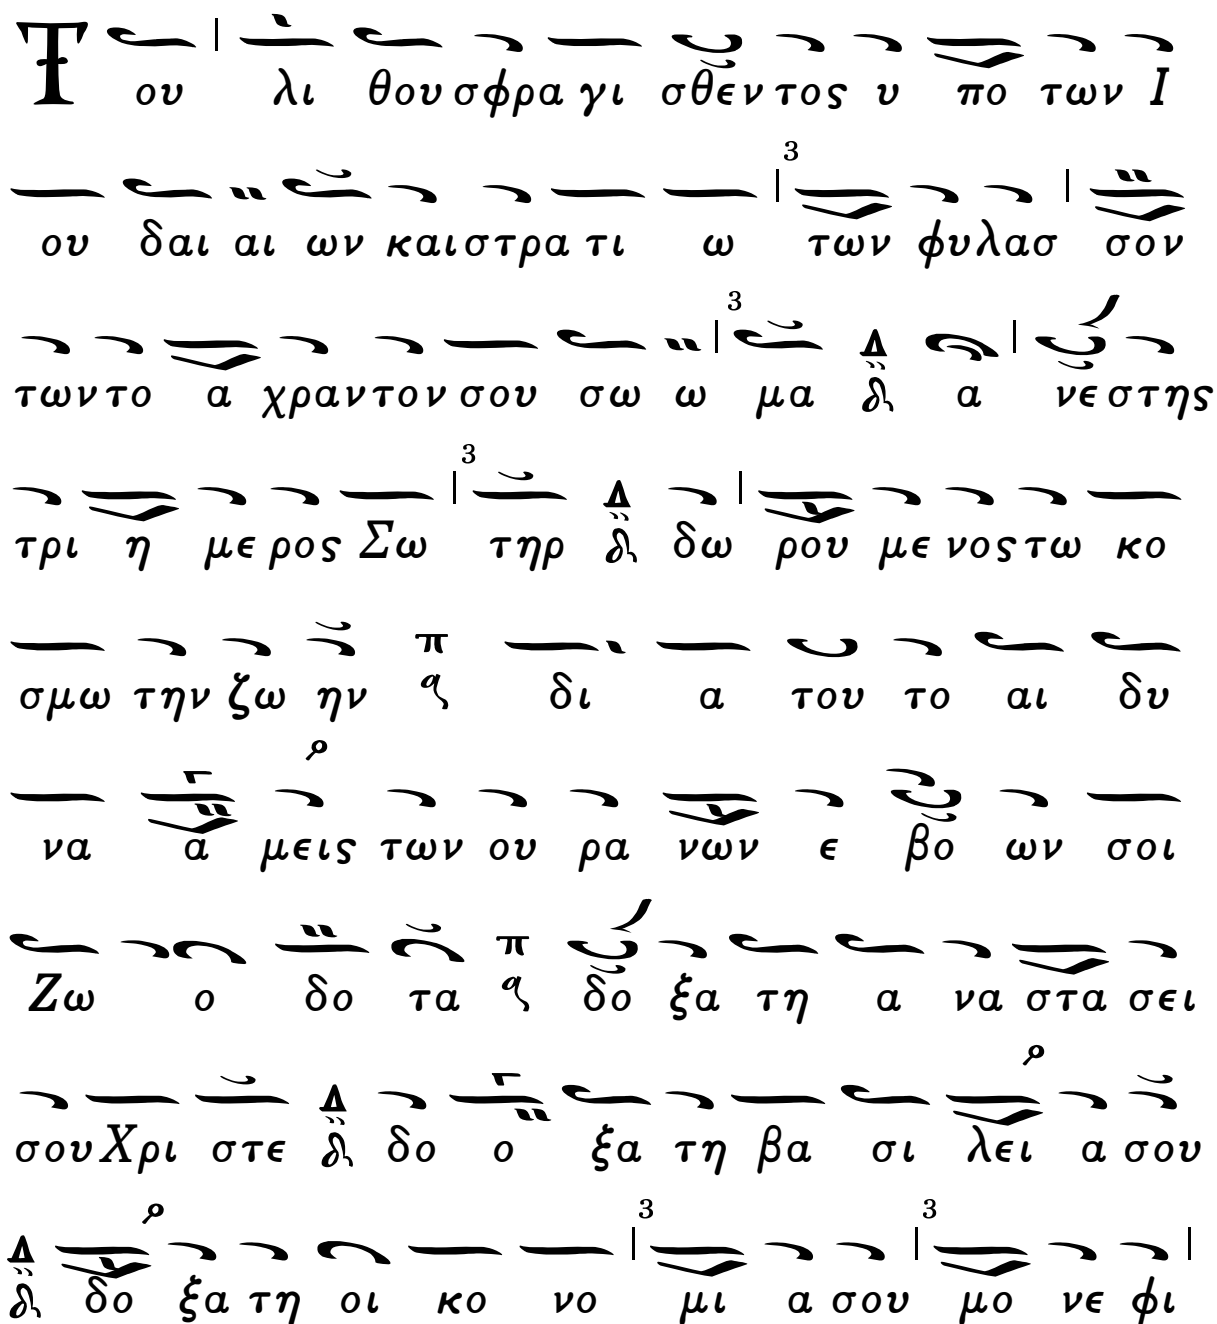 Του λι θου σφρα γι σθεν τος υ πο των Ι
ου δαι αι ων και στρα τι ω των φυ λασ σον
των το α χραν τον σου σω ω μα Δ α νε στης
τρι η με ρος Σω τηρ Δ δω ρου με νος τω κο
σμω την ζω ην π δι α του το αι δυ
να α μεις των ου ρα νων ε βο ων σοι
Ζω ο δο τα π δο ξα τη α να στα σει
σου Χρι στε Δ δο ο ξα τη βα σι λει α σου
Δ δο ξα τη οι κο νο μι α σου μο νε φι